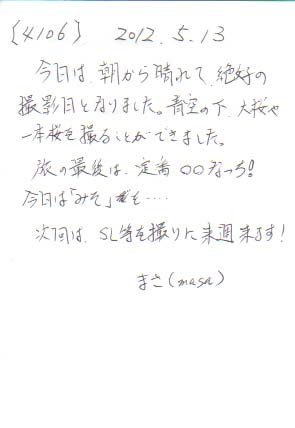 {4106} 2012.5.13
今日は、朝から晴れて、絶好の
撮影日となりました。青空の下、大桜や
一本桜を撮ることができました。
旅の最後は、定番 〇〇なっち!!
今日は「みそ」を‥‥
次回は、SL等を撮りに来週来ます!
まさ(masa)